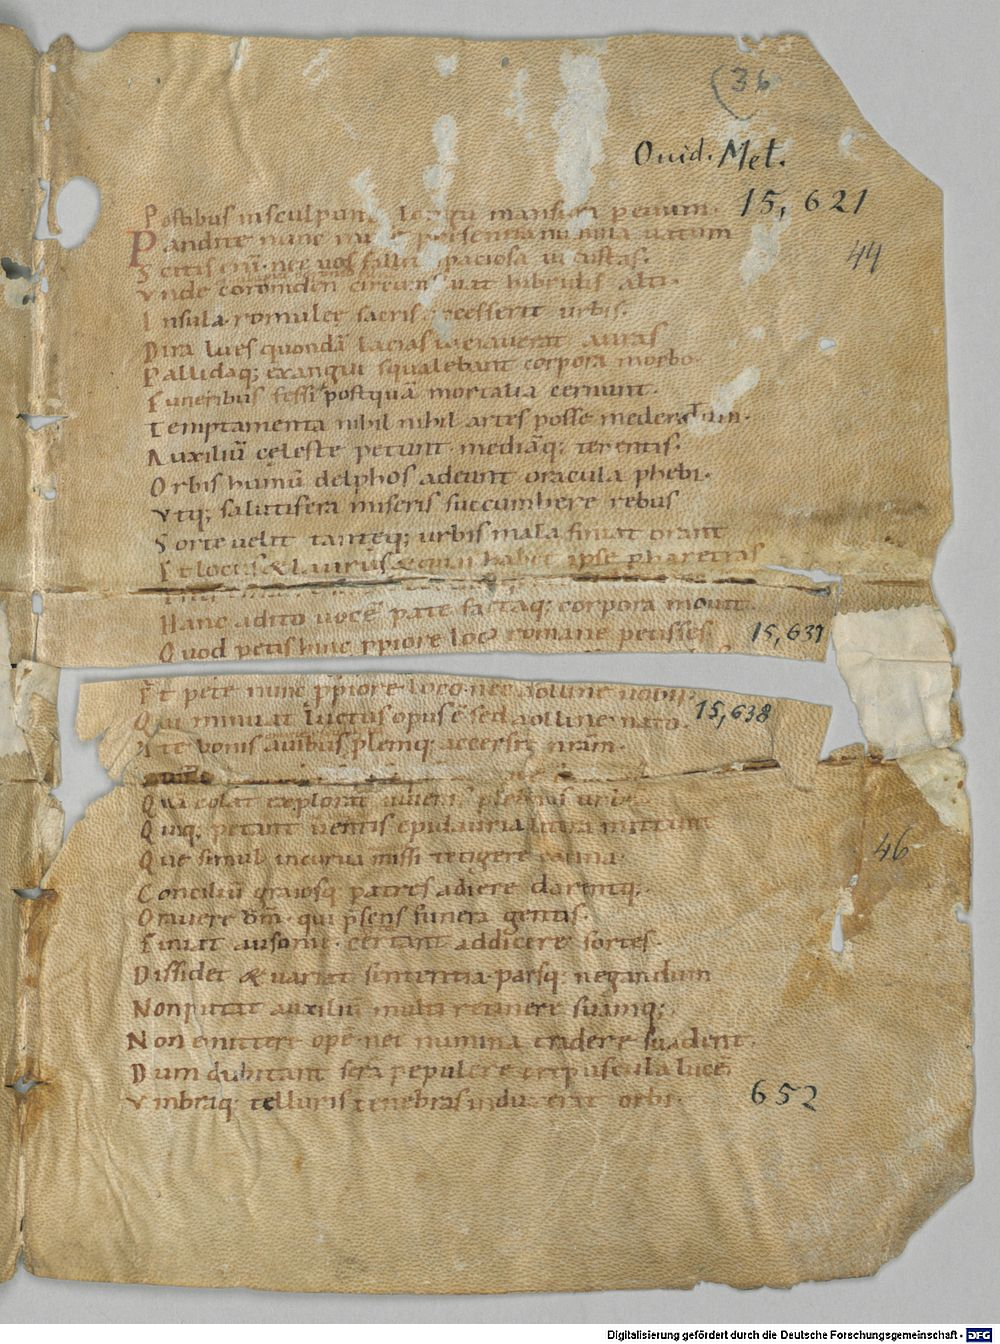 (36
Ouid. Met.
15, 621
Postibus insculpunt longu mansura peuum.
Pandite nunc persentia numina uatum
Scitis eni nec uos fallit spaciosa uetustas.
44
Vnde coroniden circum alti.
Insula romulee sacris accesserit urbis.
Dira lues quondā lacias uiciauerat auras
Pallidaq; exangui squalebant corpora morbo.
Funeribus fessi postquā mortalia cernunt.
Temptamenta nihil nihil artes posse medendum.
Auxiliū celeste petunt mediāq; terentis.
Orbis humū delphos adeunt oracula phebi.
Vtq; salutifera miseris succumbere rebus
Sorte uelit tanteq; urbis mala finiat orant
Et locus & laurus & quā habet ipse pharetras
Hanc adito uocē pate factaq; corpora mouit.
Quod petis hinc ppiore loco romane petisses.
15, 637
Et pete nunc ppiore loco nec
15, 638
Qui minuat luctus opus ē sed apolline nato.
Ite bonis auibus plemq; accersite nram.
Qui colat explorat
Quiq; petant uentis epidauria litora mittunt
46
Que simul incurua missi tetigere carina.
Conciliū graiosq patres adiere darentq;.
Orauere dm. qui psens funera gentis.
Finiat ausonie. certant addicere sortes.
Dissidet & uariat sententia. parsq; negandum
Non putat auxiliū multi retinere suamq;
Non emittere opē nec numina tradere suadent.
Dum dubitant sera pepulere crepuscula lucē
Vmbraq; telluris tenebras induxerat orbi.
652
Digitalisierung gefördert durch die Deutsche Forschungsgemeinschaft - DFG